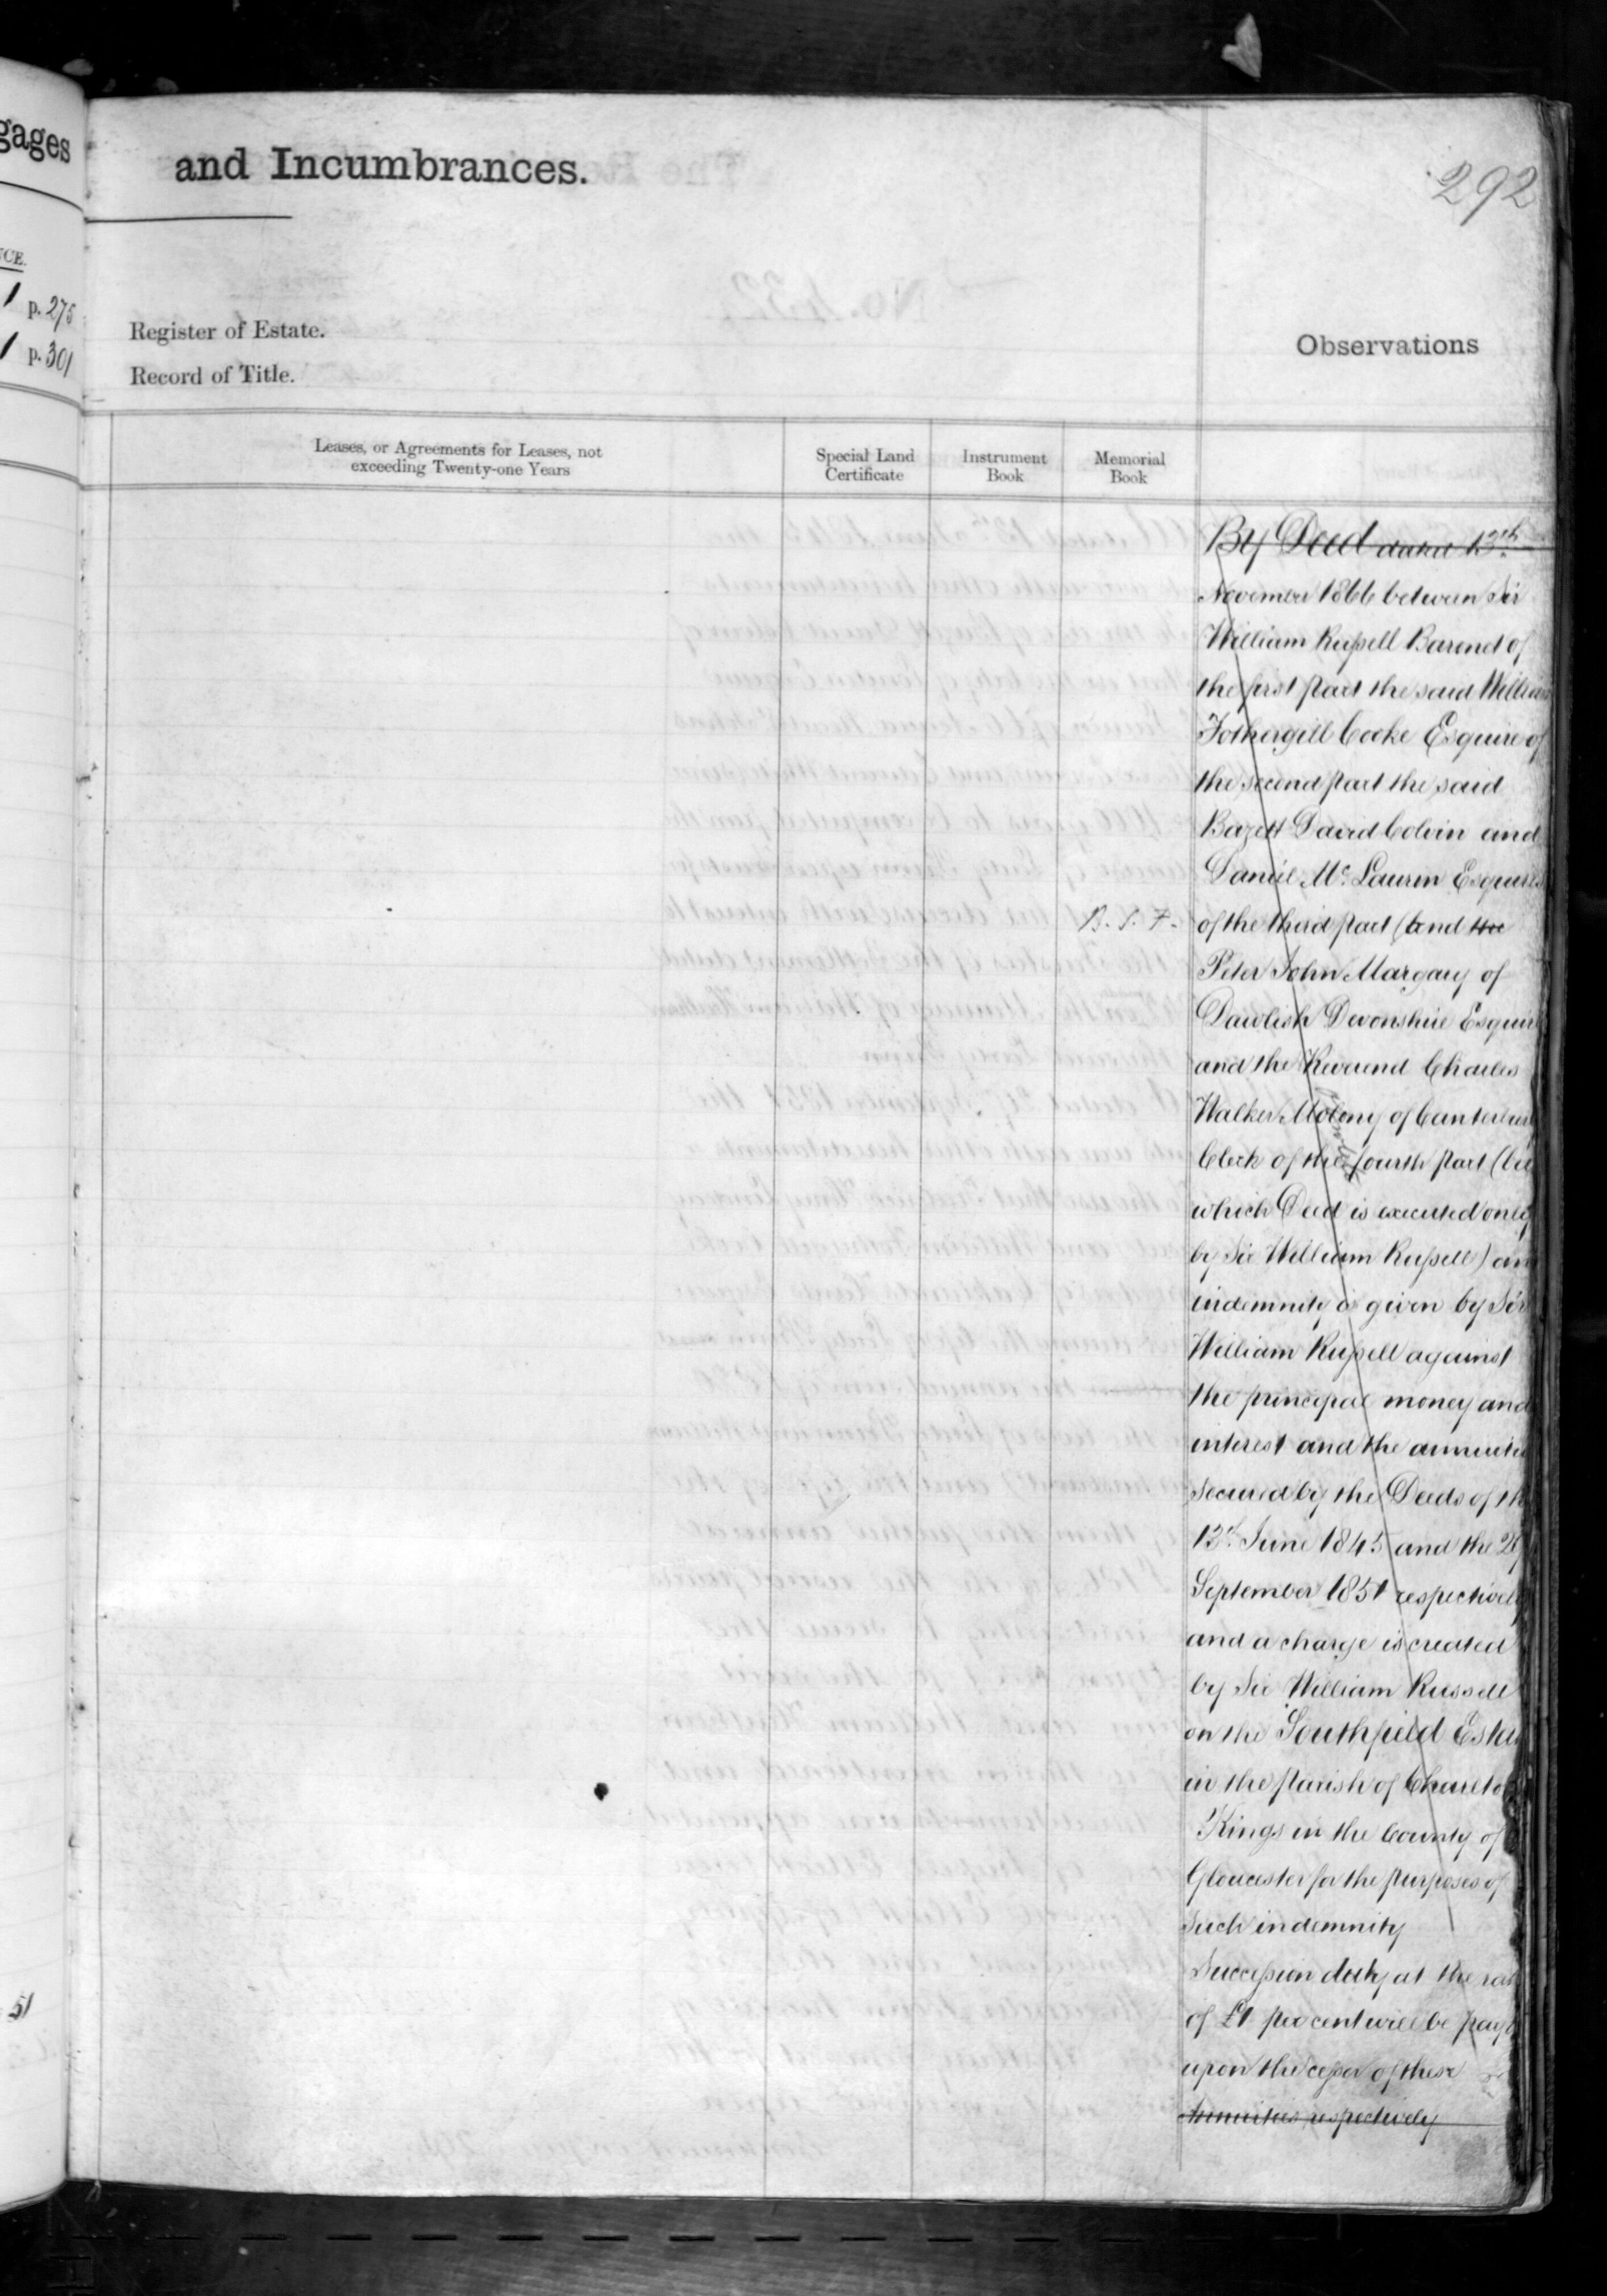 gages
and Incumbrances.
292
CE.
1 p. 275
1 p. 301
Register of Estate.
Record of Title.
Observations
Leases, or Agreements for Leases, not
exceeding Twenty-one Years
Special Land
Certificate
Instrument
Book
Memorial
Book
By Deed dated 13th
November 1866 between Sir
William Russell Baronet of
the first part the said William
Fothergill Cooke Esquire of
the second part the said
Bazett David Colvin and
Daniel Mc. Laurin Esquires
B. S. F.
of the third part (and the
Peter John Margary of
Dawlish Devonshire Esquire
and the Reverend Charles
Walker Molony of Canterbury
Clerk of the fourth part (
which Deed is executed only
by Sir William Russell) an
indemnity is given by Sir
William Russell against
the principal money and
interest and the
secured by the Deeds of th
13th June 1845 and the 2
September 1851 respectively
and a charge is created
by Sir William Russell
on the Southfield
in the parish of
Kings in the County of
Gloucester for the purposes of
such indemnity
Succession duty at the rat
of £1 per cent will be pay
upon the cesser of these
Annuities respectively
51